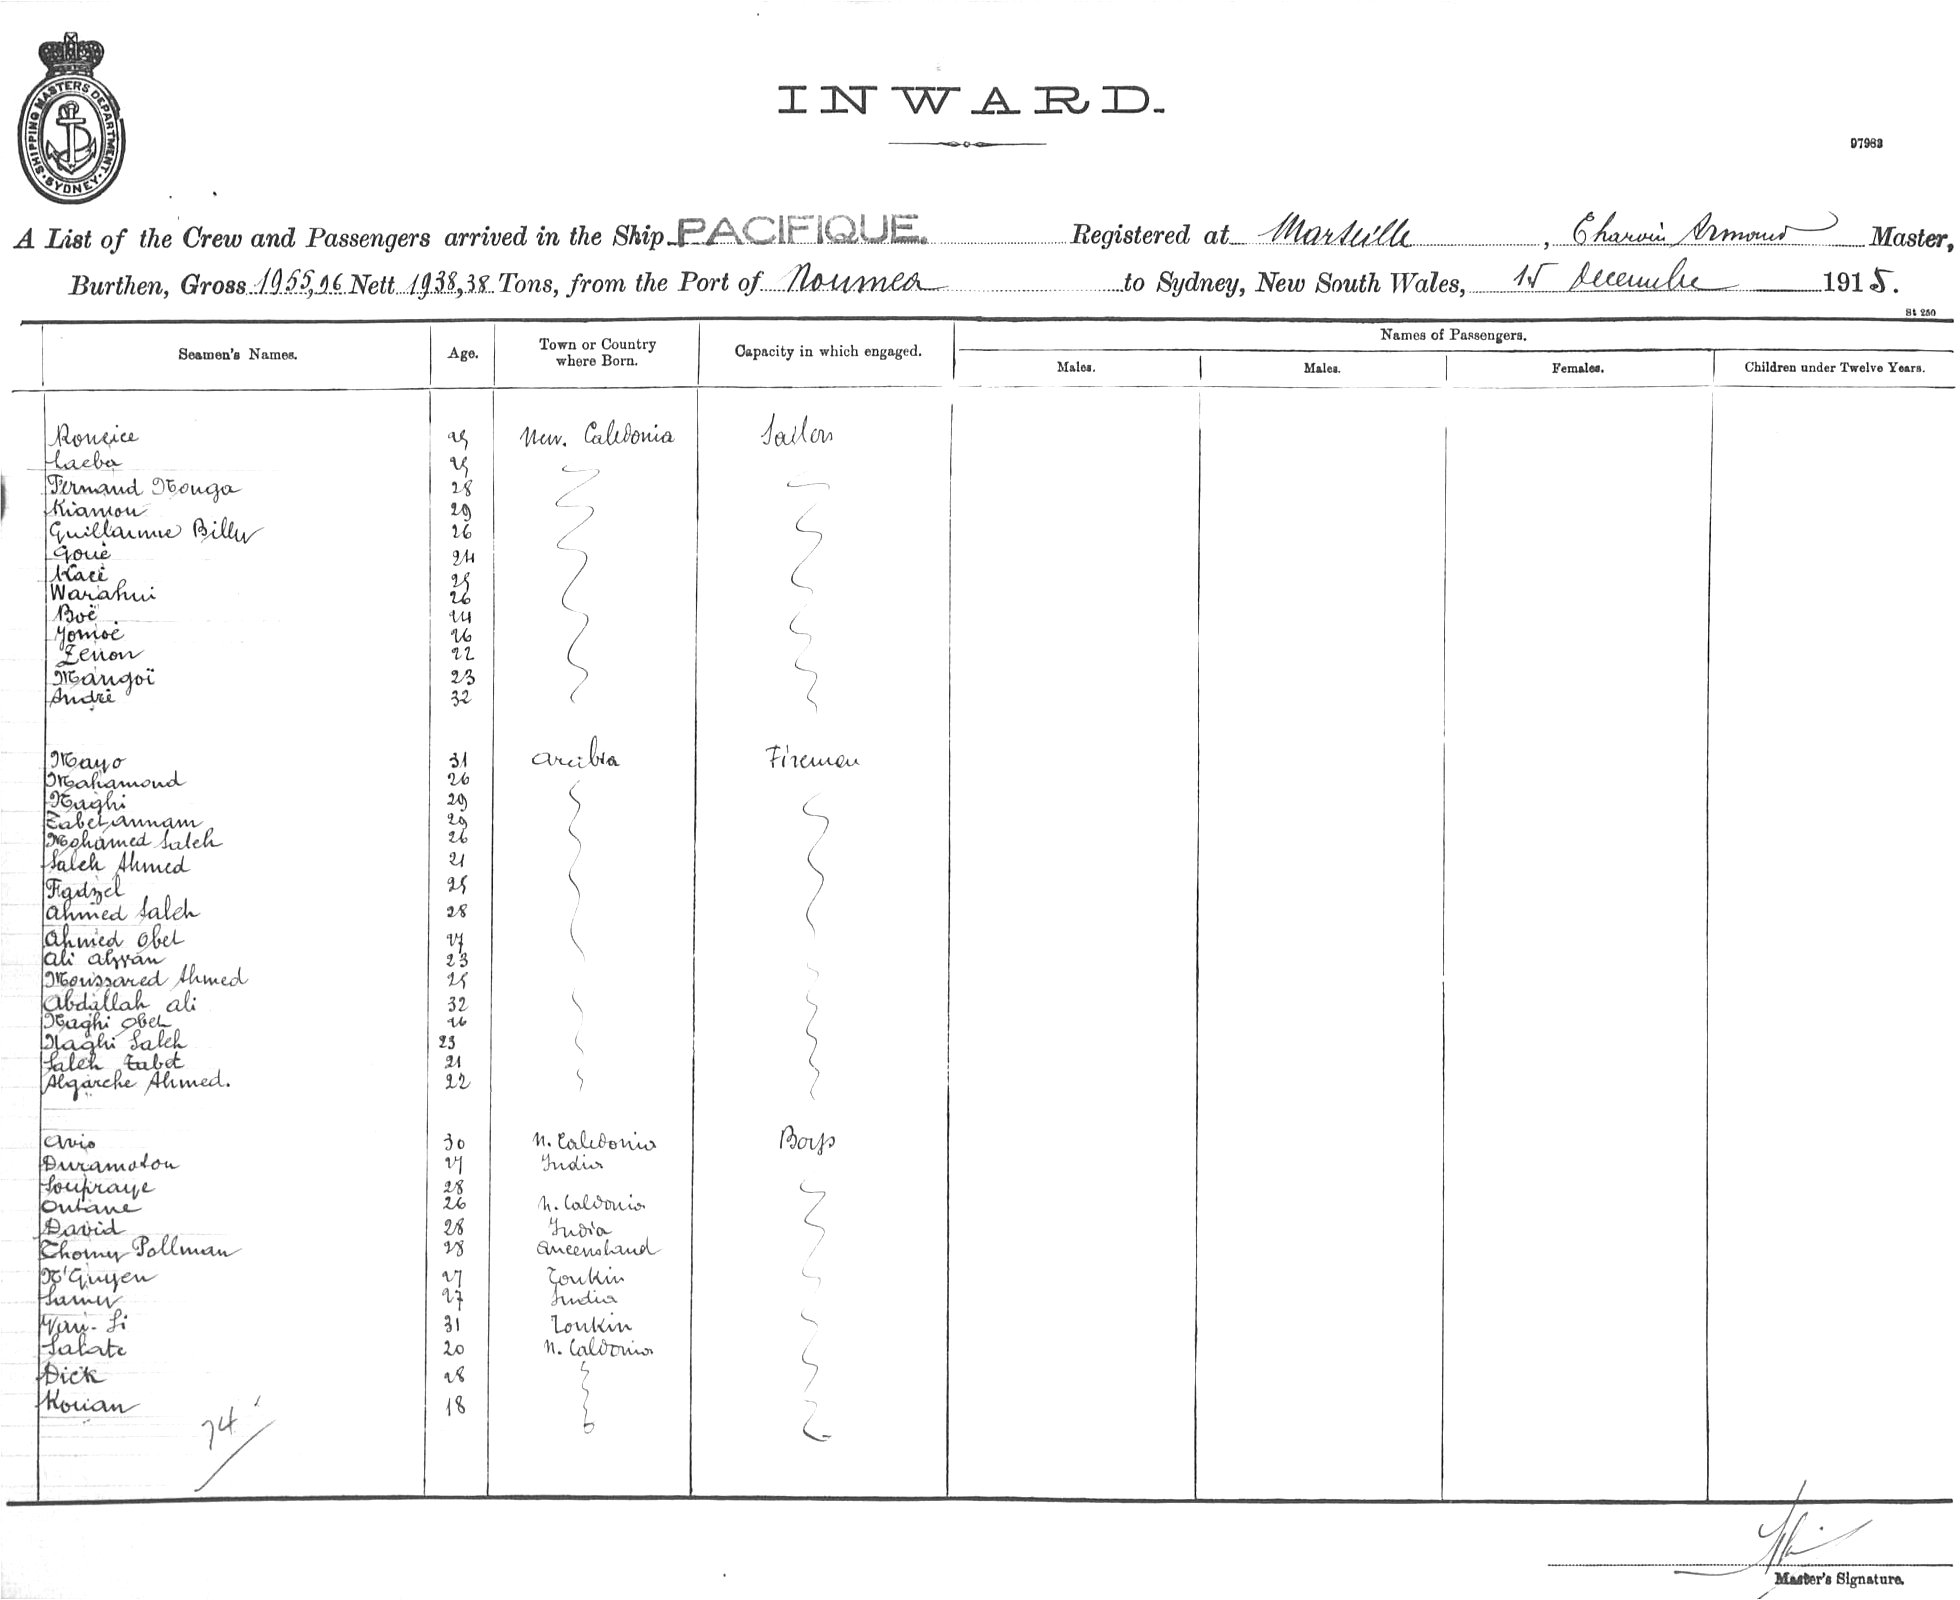 SHIPPING MASTERS DEPARTMENT. SYDNEY.
INWARD.
97983
A List of the Crew and Passengers arrived in the Ship PACIFIQUE. Registered at Marseille, Charvin Armand Master,
Burthen, Gross 1955,96 Nett 1938,38 Tons, from the Port of Noumea to Sydney, New South Wales, 15 Decembre 1915.
St 250
Seamen's Names. Age. Town or Country where Born. Capacity in which engaged. Names of Passengers.
Males. Males. Females. Children under Twelve Years.
25 New. Caledonia Sailors
25
Fernand Nonga 28
Kiamou 29
Guillaume Billy 26
Goué 24
Kacé 25
Warahui 26
Boë 24
Yomoé 26
Zenon 22
Mangoï 23
André 32
Mayo 31 Arabia Firemen
Mahamoud 26
Naghi 29
Tabet annam 29
Mohamed Saleh 26
Saleh Ahmed 21
Fadzel 25
Ahmed Saleh 28
Ahmed Obet 27
Ali 23
Moussared Ahmed 25
Abdallah Ali 32
Naghi Obet 26
Naghi Saleh 23
Saleh Tabet 21
Algarche Ahmed. 22
Avio 30 N. Caledonia Boys
Duramoton 27 India
Soupraye 28
Outane 26 N. Caldonia
David 28 India
Thomy Pollman 28 Queensland
N'Guyen 27 Tonkin
Samy 27 India
31 Tonkin
Salate 20 N. Caldonia
Dick 28
Kouan 18
74
Master's Signature.